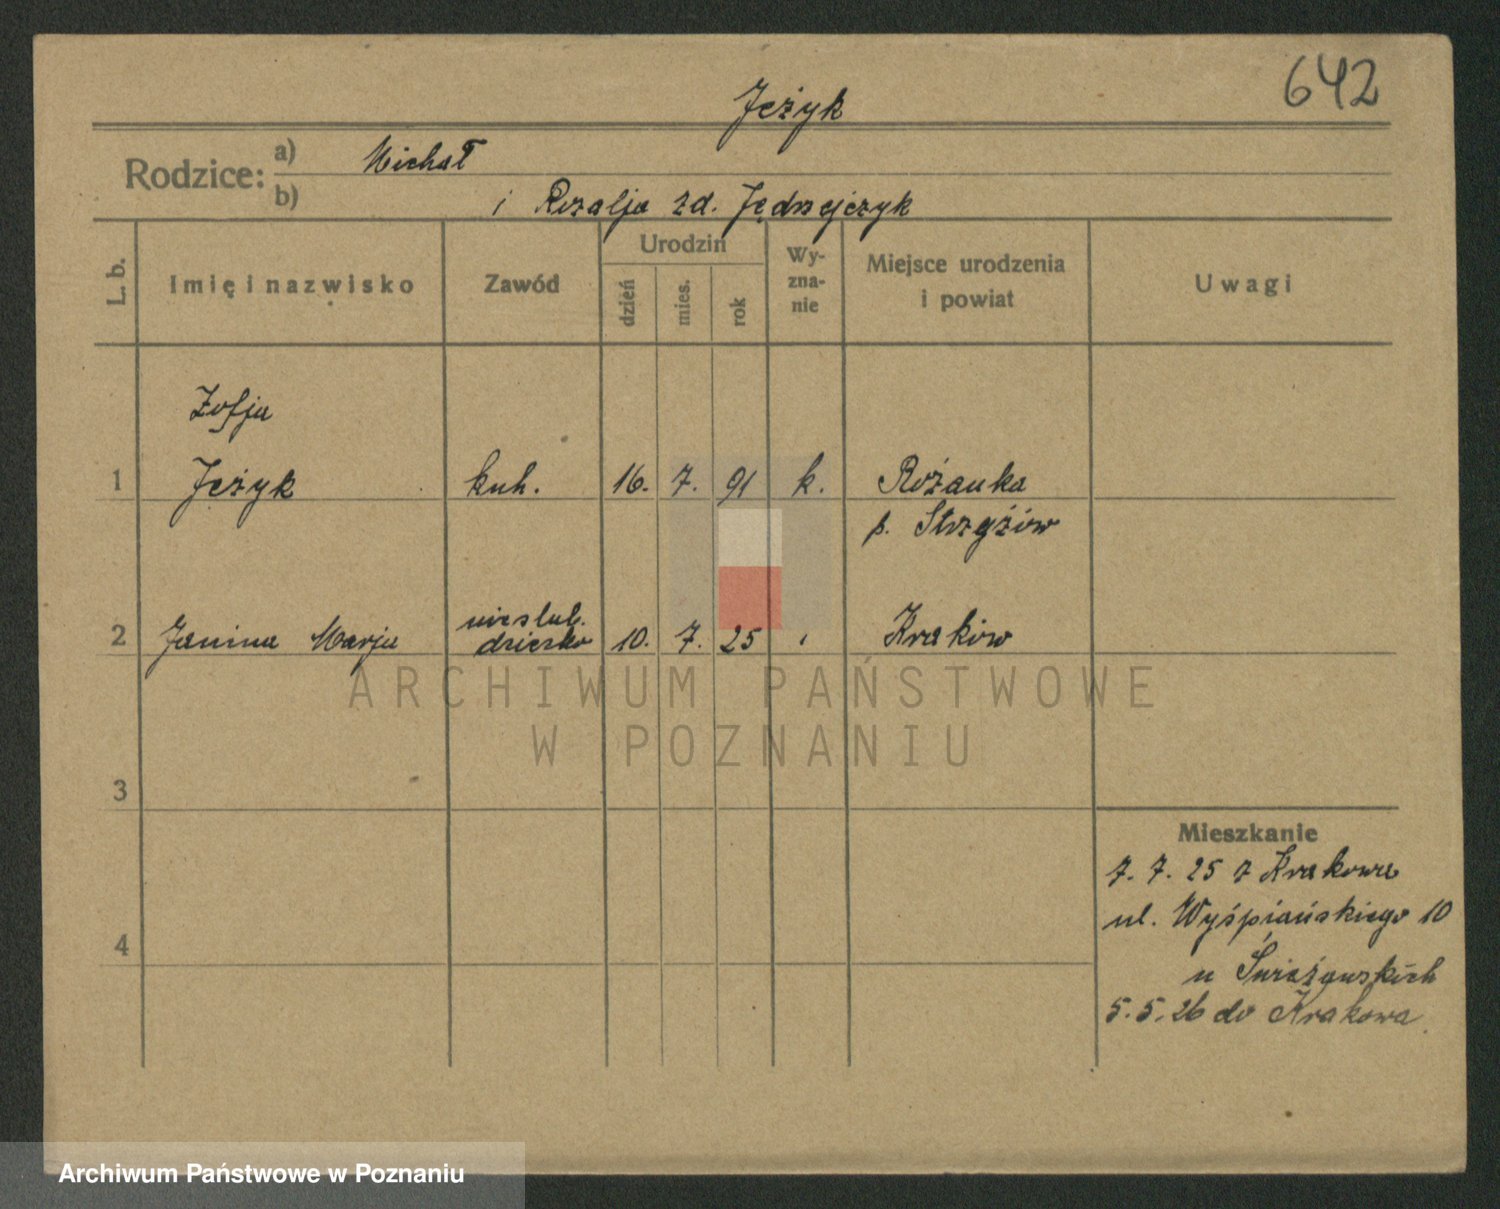 642
Jeżyk
Rodzice: a) Michał
b) i Rozalja zd. Jędrzejczyk
L. b.
Imię i nazwisko
Zawód
Urodzin
dzień
mies.
rok
Wy-
zna-
nie
Miejsce urodzenia
i powiat
Uwagi
Zofja
1 Jeżyk kuh. 16. 7. 91 k. Różanka
p. Strzyżów
nieślub.
2 Janina Marja dziecko 10. 7. 25 Kraków
ARCHIWUM PAŃSTWOWE
W POZNANIU
3
Mieszkanie
7. 7. 25 z Krakowa
ul. Wyśpiańskiego 10
4
u Świeżawskich
5. 5. 26 do Krakowa
Archiwum Państwowe w Poznaniu